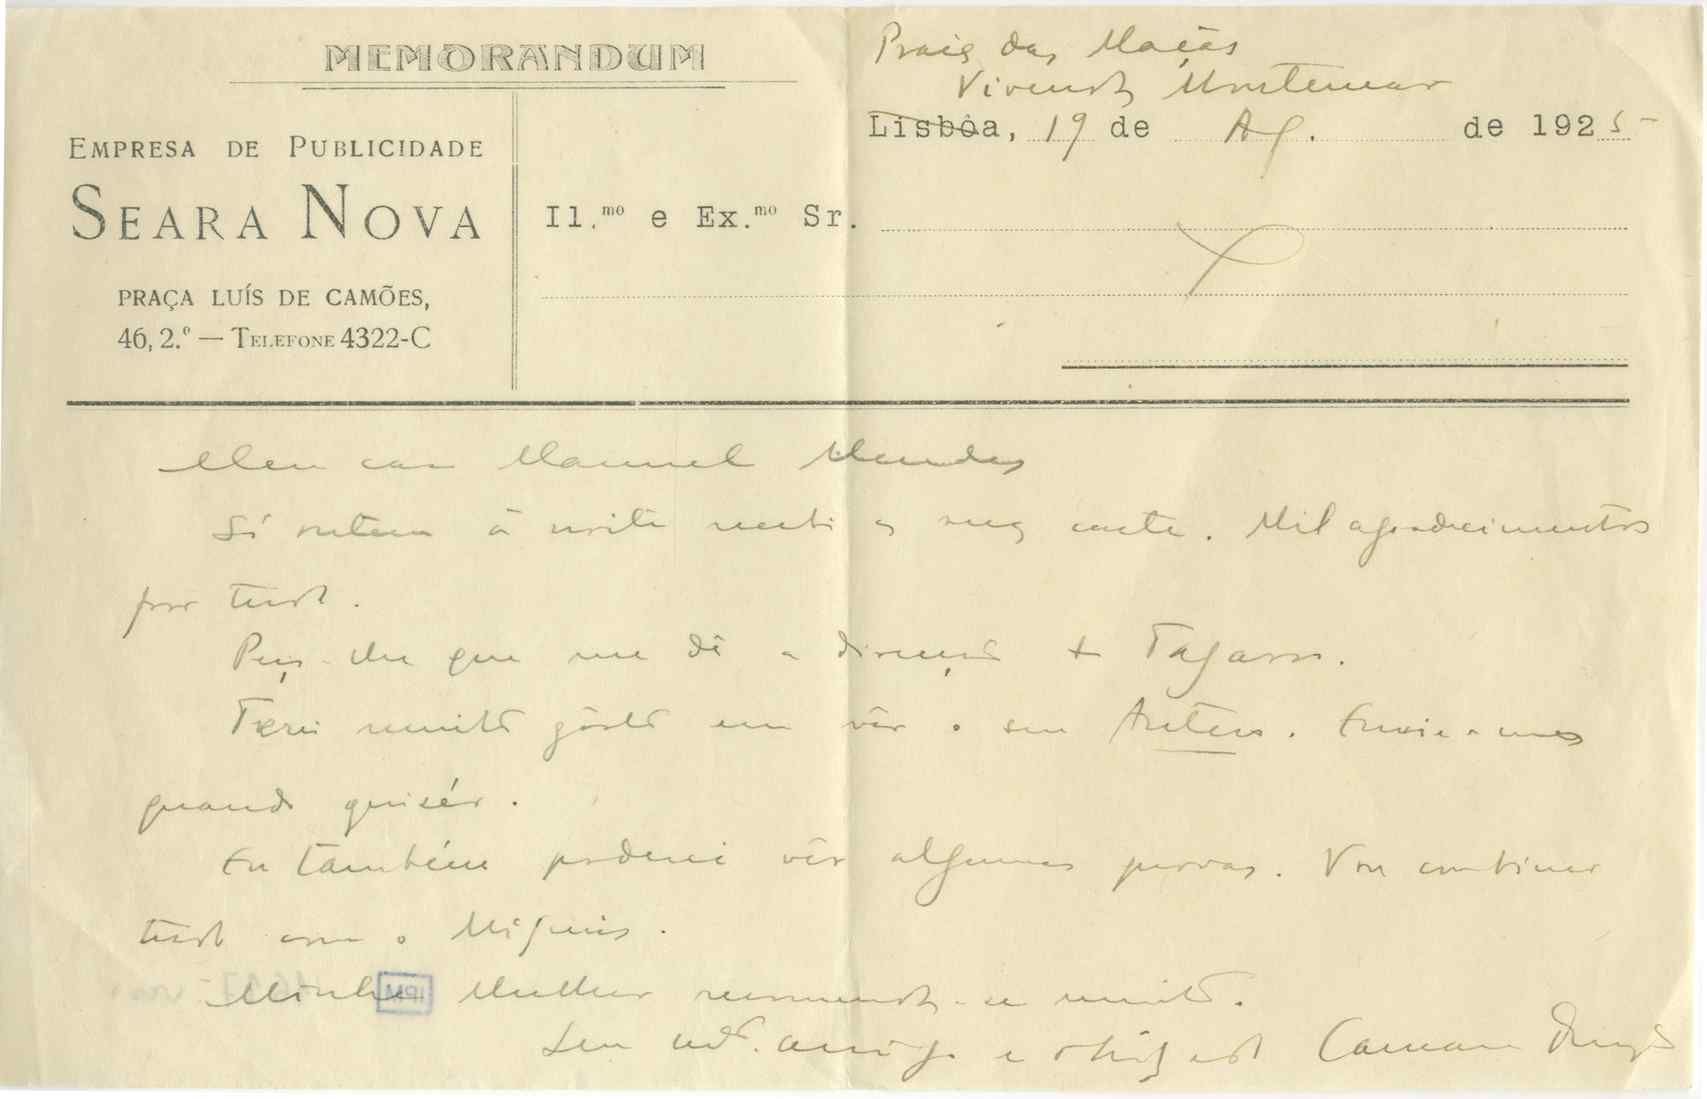 MEMORANDUM
Praia das Maçãs
Vivenda Montemar
EMPRESA DE PUBLICIDADE
SEARA NOVA
PRAÇA LUÍS DE CAMÕES,
46, 2.º — TELEFONE 4322-C
Lisbôa, 19 de Ag. de 1925
Il.mo e Ex.mo Sr.
Meu caro Manuel Mendes
Só ontem à noite recebi a sua carta. Mil agradecimentos
por tudo.
Peço-lhe que me dê a direcção do Tagarro.
Terei muito gôsto em vêr o seu Antero. Envie-mo
quando quisér.
Eu também poderei vêr algumas provas. Vou combinar
tudo com o Migueis.
Minha Mulher recomenda-se muito.
Seu adº. amigo e obrigado Camara Reys